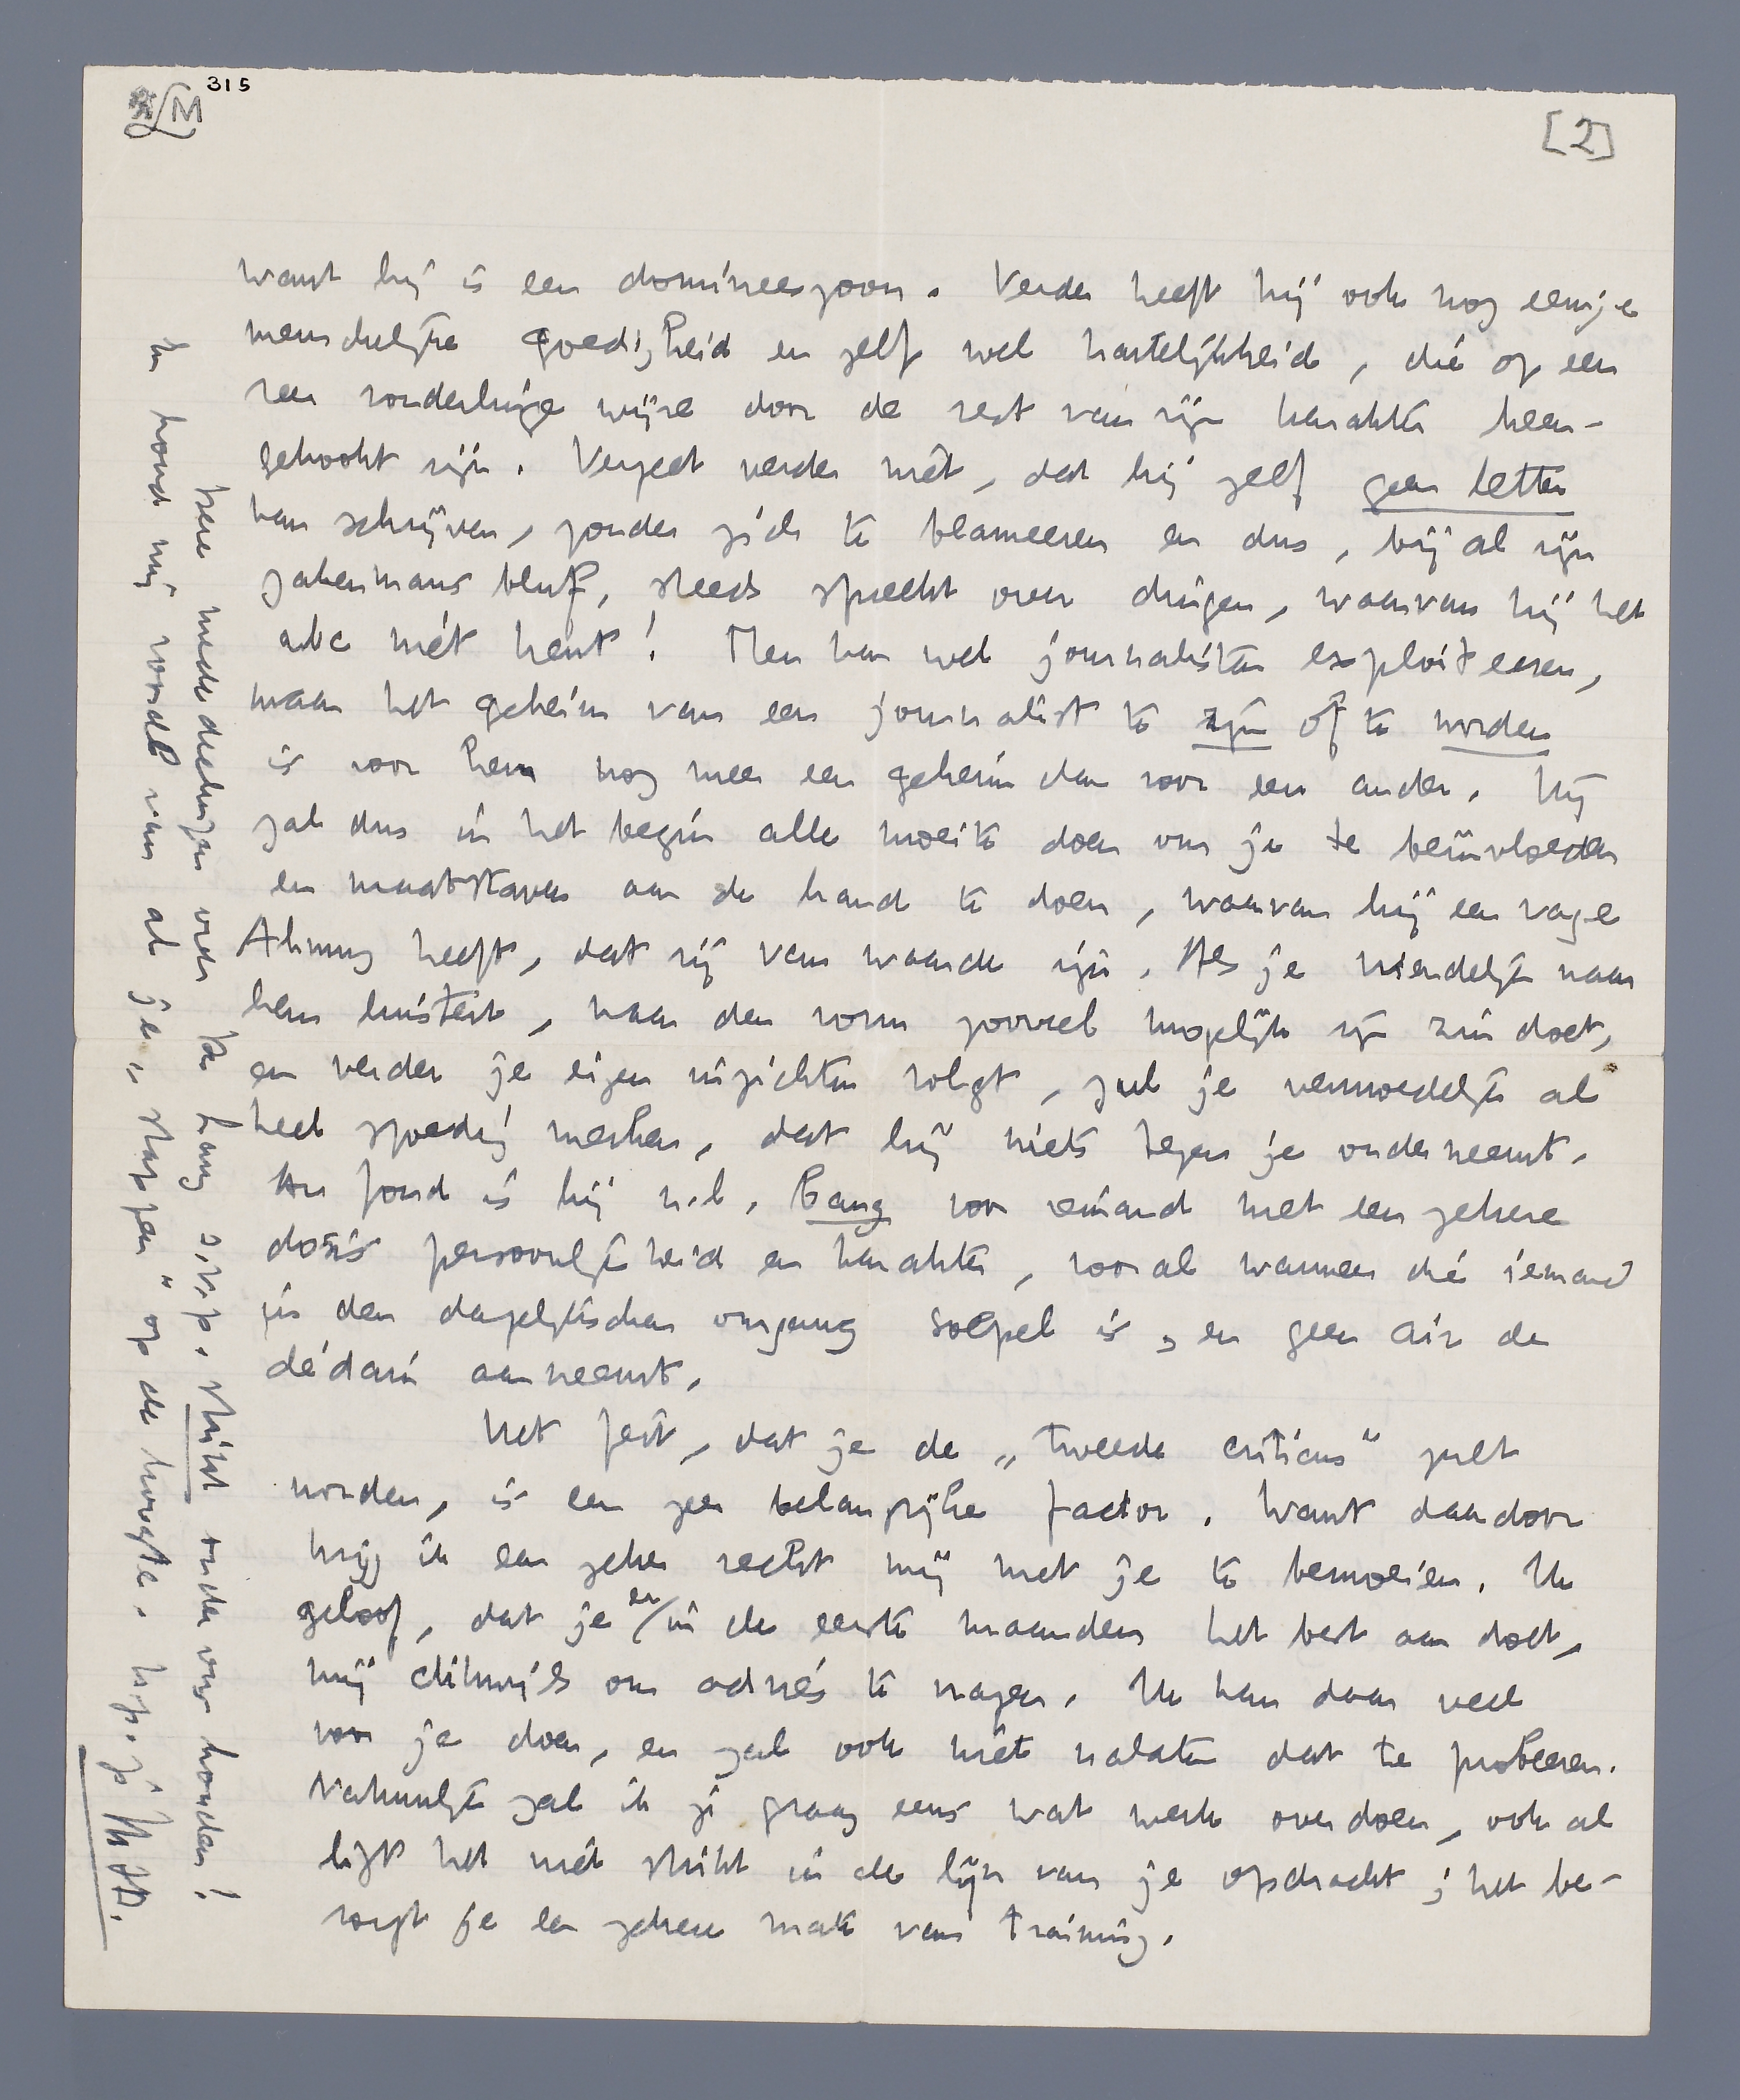 315
[2]
want hij is een domineeszoon. Verder heeft hij ook nog eenige
menschelijke goedigheid en zelf wel hartelijkheid, die op een
zeer zonderlinge wijze door de rest van zijn karakter heen-
gehookt zijn. Vergeet verder niet, dat hij zelf geen letter
kan schrijven, zonder zich te blameeren en dus, bij al zijn
zakenmans bluf, steeds spreekt over dingen, waarvan hij het
abc niet kent! Men kan wel journalisten exploiteeren,
maar het geheim van een journalist te zijn of te worden
is voor hem nog meer een geheim dan voor een ander. Hij
zal dus in het begin alle moeite doen om je te beïnvloeden
en maatstaven aan de hand te doen, waarvan hij een vage
Ahnung heeft, dat zij van waarde zijn. Als je vriendelijk naar
hem luistert, naar den vorm zooveel mogelijk zijn zin doet,
en verder je eigen inzichten volgt, zul je vermoedelijk al
heel spoedig merken, dat hij niets tegen je onderneemt.
Au fond is hij n.l. bang voor iemand met een zekere
dosis persoonlijkheid en karakter, vooral wanneer die iemand
in den dagelijkschen omgang soepel is, en geen air de
dédain aanneemt.
Het feit, dat je de „tweede criticus" zult
worden, is een zeer belangrijke factor. Want daardoor
krijg ik een zeker recht mij met je te bemoeien. Ik
geloof, dat je er in de eerste maanden het best aan doet,
mij dikwijls om advies te vragen. Ik kan daar veel
voor je doen, en zal ook niet nalaten dat te probeeren.
Natuurlijk zal ik je graag eens wat werk overdoen, ook al
ligt het niet strikt in de lijn van je opdracht; het be-
zorgt je een zekere mate van training.
Deze mededeelingen over de Haag s.v.p. strikt onder ons houden!
En houd mij vooral van al je „stappen" op de hoogte. h.gr. je M.t.B.